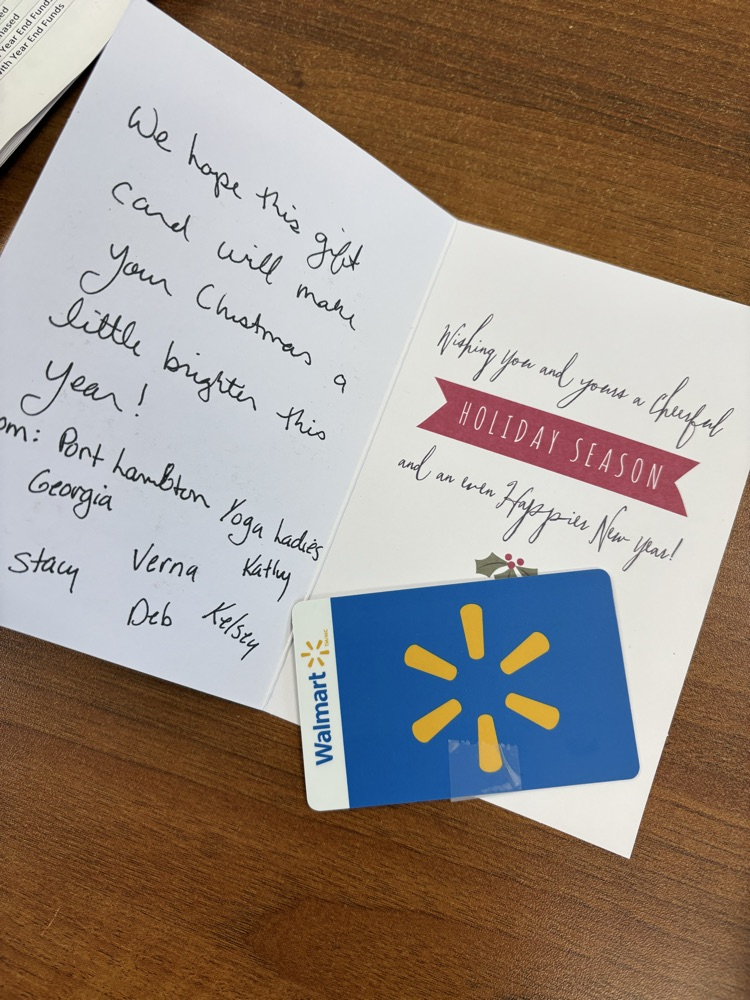 Year End Funds
with Year End Funds
We hope this gift
card will make
your Christmas a
little brighter this
year!
om: Port Lambton Yoga Ladies
Georgia
Stacy Verna Kathy
Deb Kelsey
Wishing you and yours a Cheerful
HOLIDAY SEASON
and an even Happier New year!
Walmart